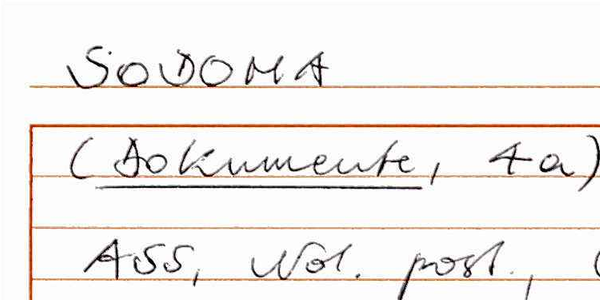 SODOMA
(Dokumente, 4a)
ASS, Not. post., (